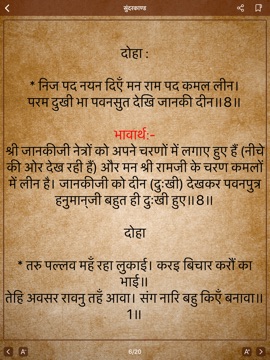 सुंदरकाण्ड
दोहा :
* निज पद नयन दिएँ मन राम पद कमल लीन।
परम दुखी भा पवनसुत देखि जानकी दीन॥8॥
भावार्थ:-
श्री जानकीजी नेत्रों को अपने चरणों में लगाए हुए हैं (नीचे
की ओर देख रही हैं) और मन श्री रामजी के चरण कमलों
में लीन है। जानकीजी को दीन (दुःखी) देखकर पवनपुत्र
हनुमान्‌जी बहुत ही दुःखी हुए॥8॥
दोहा
* तरु पल्लव महँ रहा लुकाई। करइ बिचार करौं का
भाई॥
तेहि अवसर रावनु तहँ आवा। संग नारि बहु किएँ बनावा॥
1॥
6/20